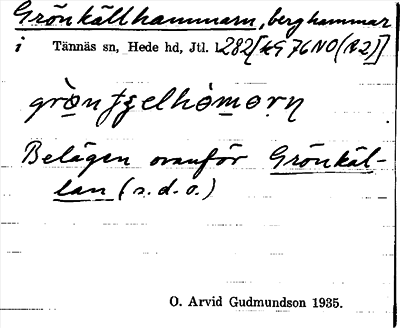 Grönkällhammarn, berghammar
i Tännäs sn, Hede hd, Jtl. l. 282 [kG 76 NO (N2)]
Belägen ovanför Grönkäl-
lan (s.d.o.)
O. Arvid Gudmundson 1935.